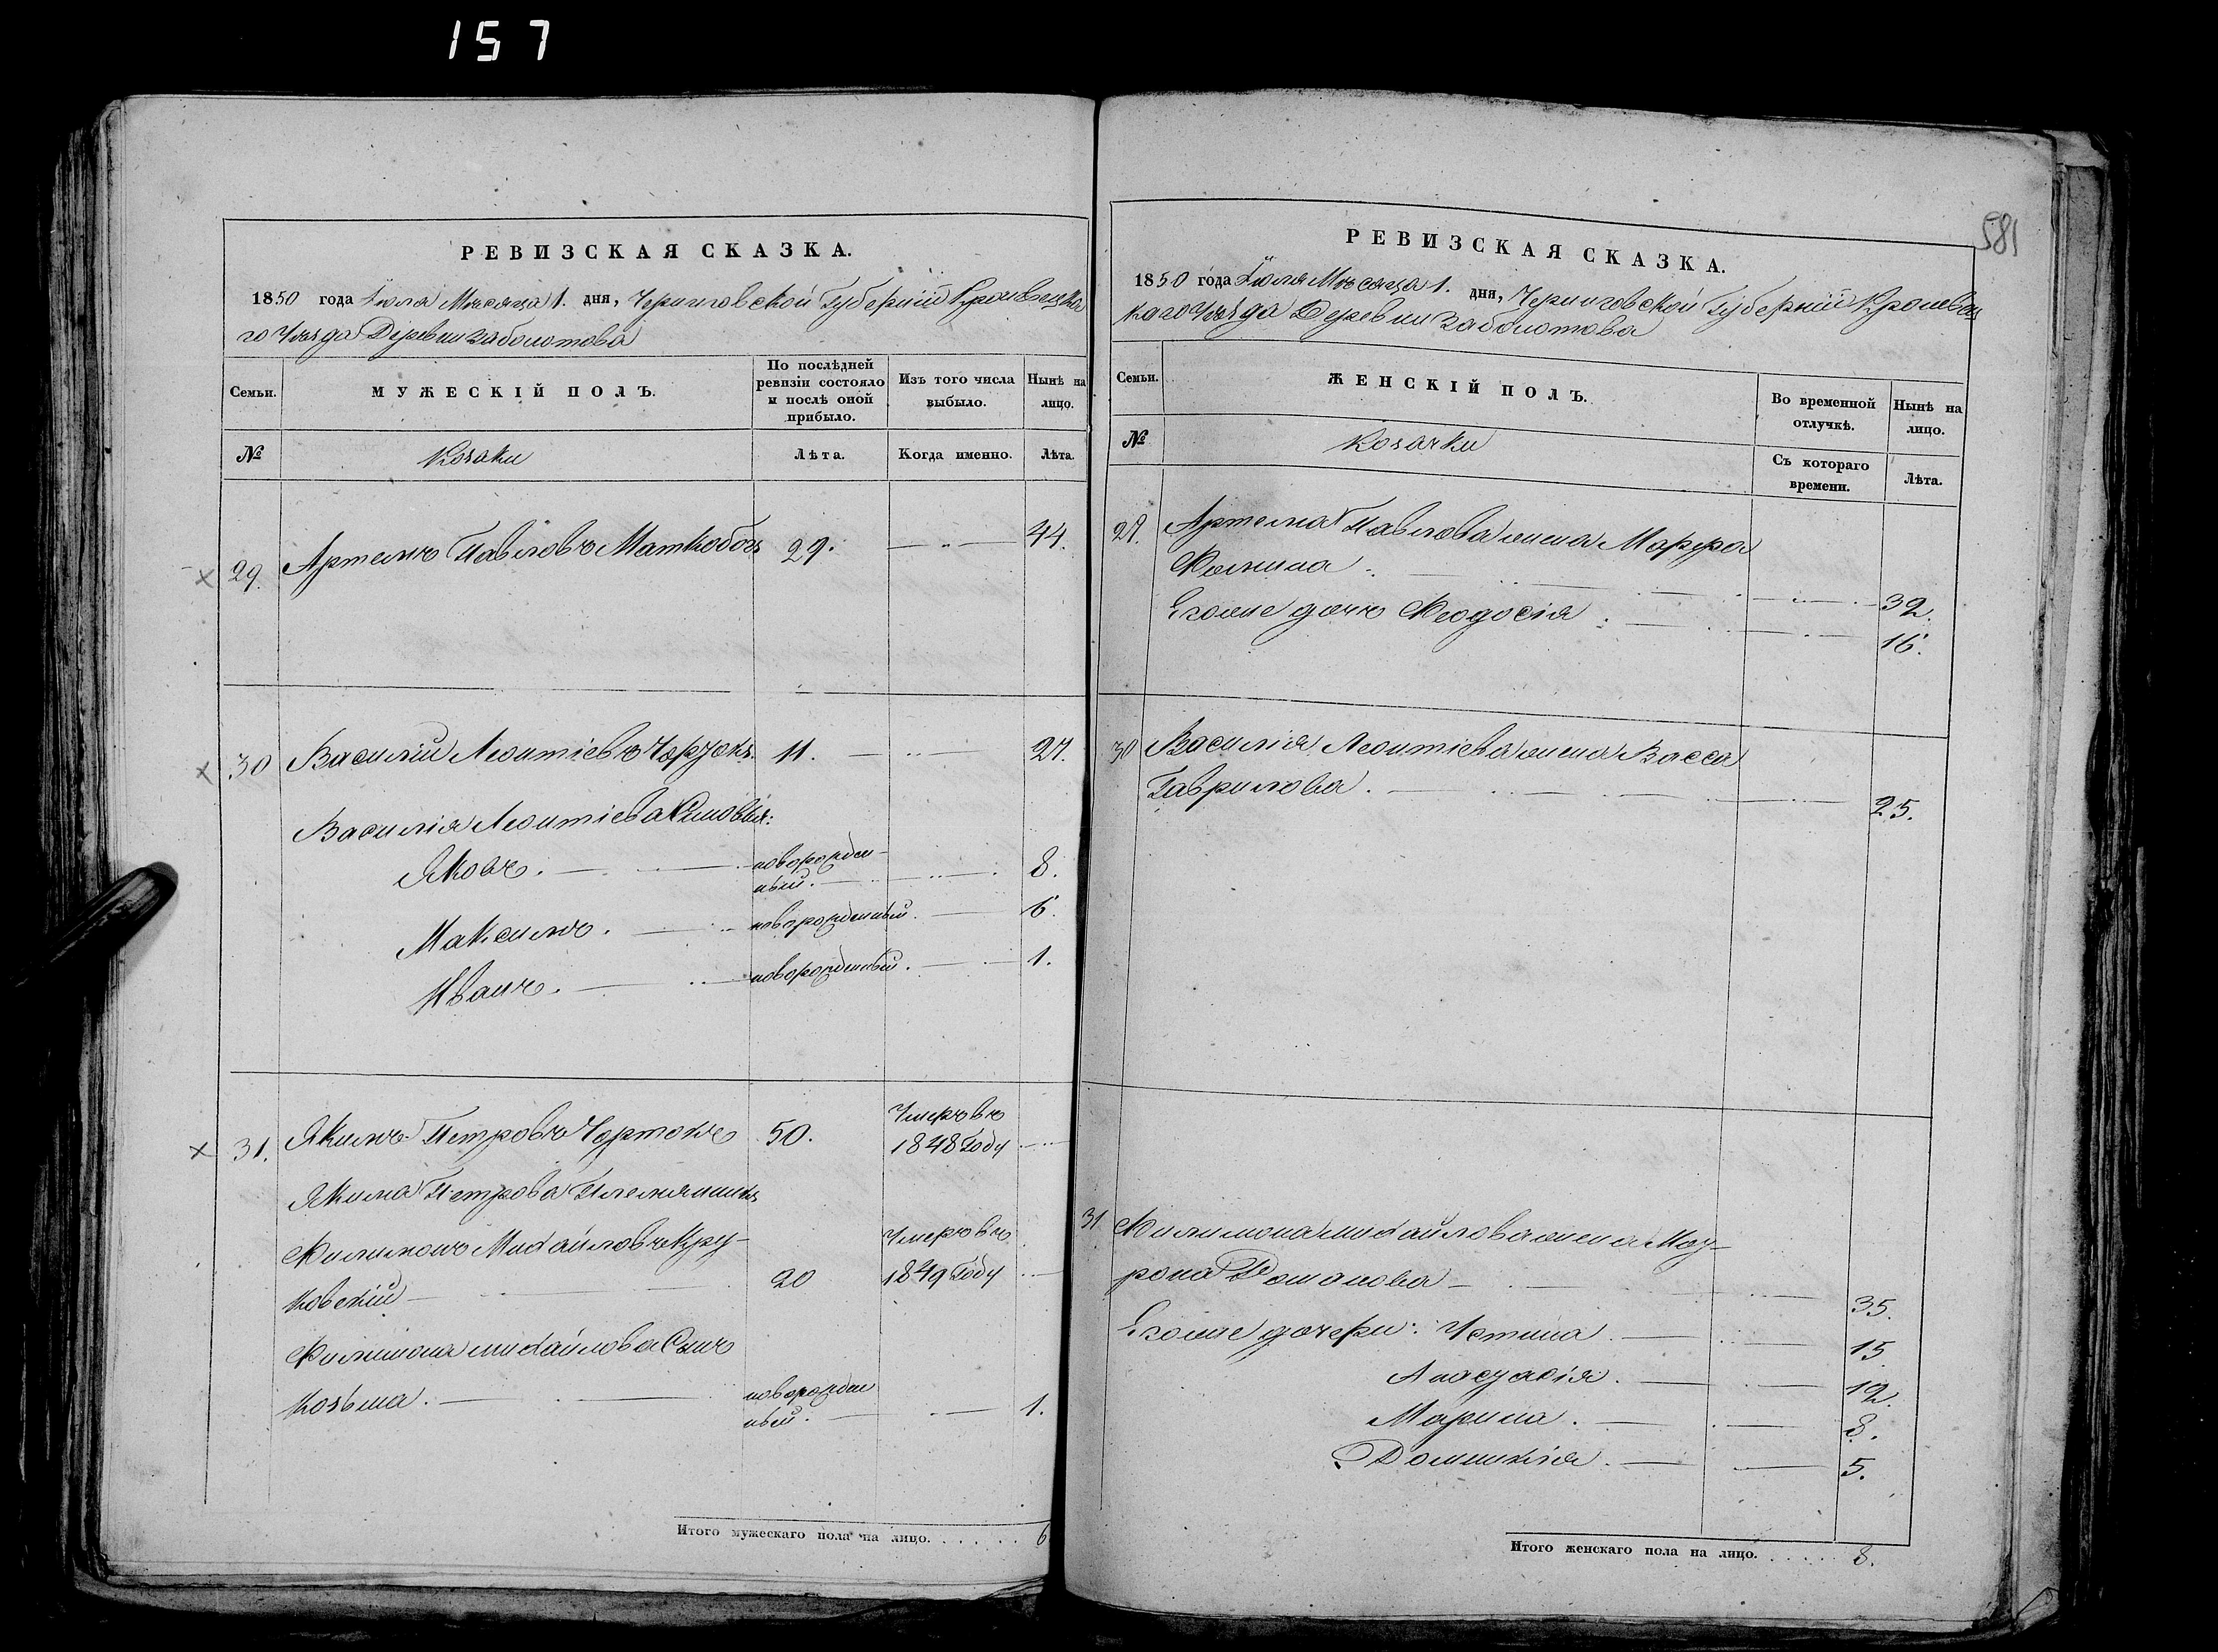 157
РЕВИЗСКАЯ СКАЗКА.
1850 года Іюля Мѣсяца 1. дня, Черниговской Губерніи Кролевецка
го Уѣзда Деревни Заболотова
Семьи.
МУЖЕСКІЙ ПОЛЪ.
По послѣдней ревизіи состояло и послѣ оной прибыло.
Изъ того числа выбыло.
Нынѣ на лицо.
№
Козаки
Лѣта.
Когда именно.
Лѣта.
29. Артемъ Павловъ 29. 44.
30 Василій Леонтіевъ 11. 27.
Василія Леонтіева Сыновья:
Яковъ. новорожден
ный. 8.
Максимъ. новорожденный. 6.
Иванъ. новорожденный. 1.
31. Якимъ Петровъ Чортокъ 50. Умеръ въ
1848 Году
Якима Петрова Племянникъ
Филимонъ Михайловъ
20 Умеръ въ
1849 Году
Филимона Михайлова Сынъ
Козьма. новорожден
ный. 1.
Итого мужескаго пола на лицо. 6
581
РЕВИЗСКАЯ СКАЗКА.
1850 года Іюля Мѣсяца 1. дня, Черниговской Губерніи Кролевец
каго Уѣзда Деревни Заболотова
Семьи.
ЖЕНСКІЙ ПОЛЪ.
Во временной отлучкѣ.
Нынѣ на лицо.
№
Козачки
Съ котораго времени.
Лѣта.
29. Артема Павлова жена Марфа
Фомина 32.
Егоже дочь Феодосія 16.
30 Василія Леонтіева жена Васса
Гаврилова. 25.
31 Филимона Михайлова жена Мат
рона Романова 35.
Егоже дочери: Устина. 15
Анастасія. 12.
Марина. 8.
Домникія. 5.
Итого женскаго пола на лицо. 8.